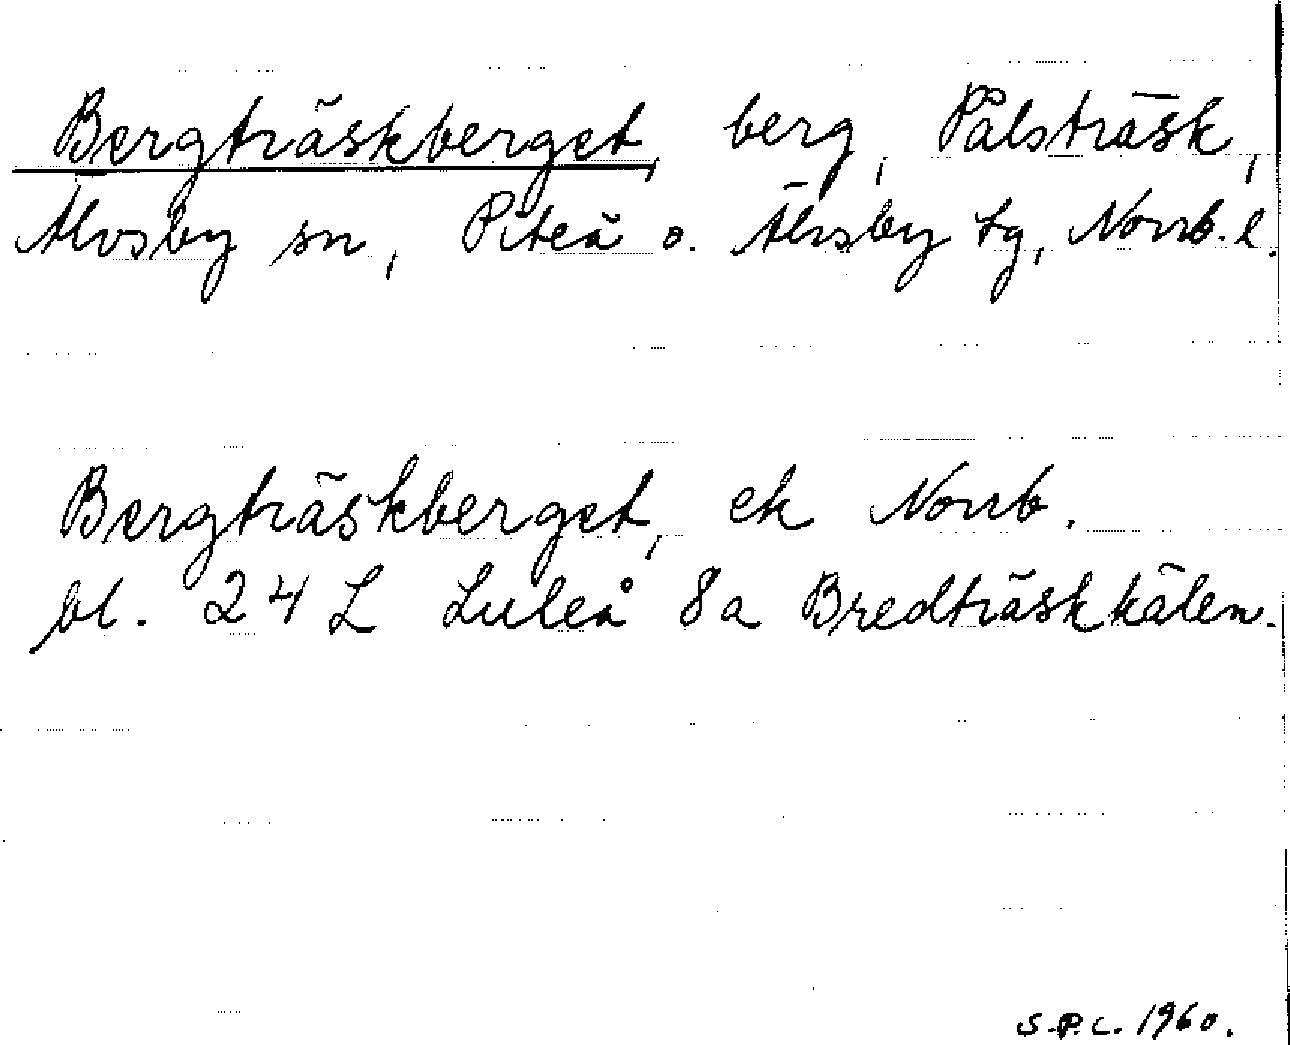 Bergträskberget, berg, Pålsträsk,
Älvsby sn, Piteå o. Älvsby tg, Norrb. l.
Bergträskberget, ek Norrb.
bl. 24 L Luleå 8a Bredträskkälen.
S.P.C. 1960.